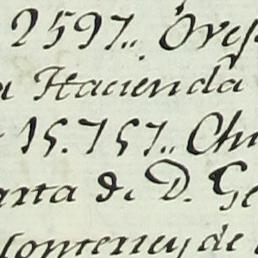 2597.. Ovej
a Hacienda
15.757.. Chi
arta de D. Ge
Monterrey de